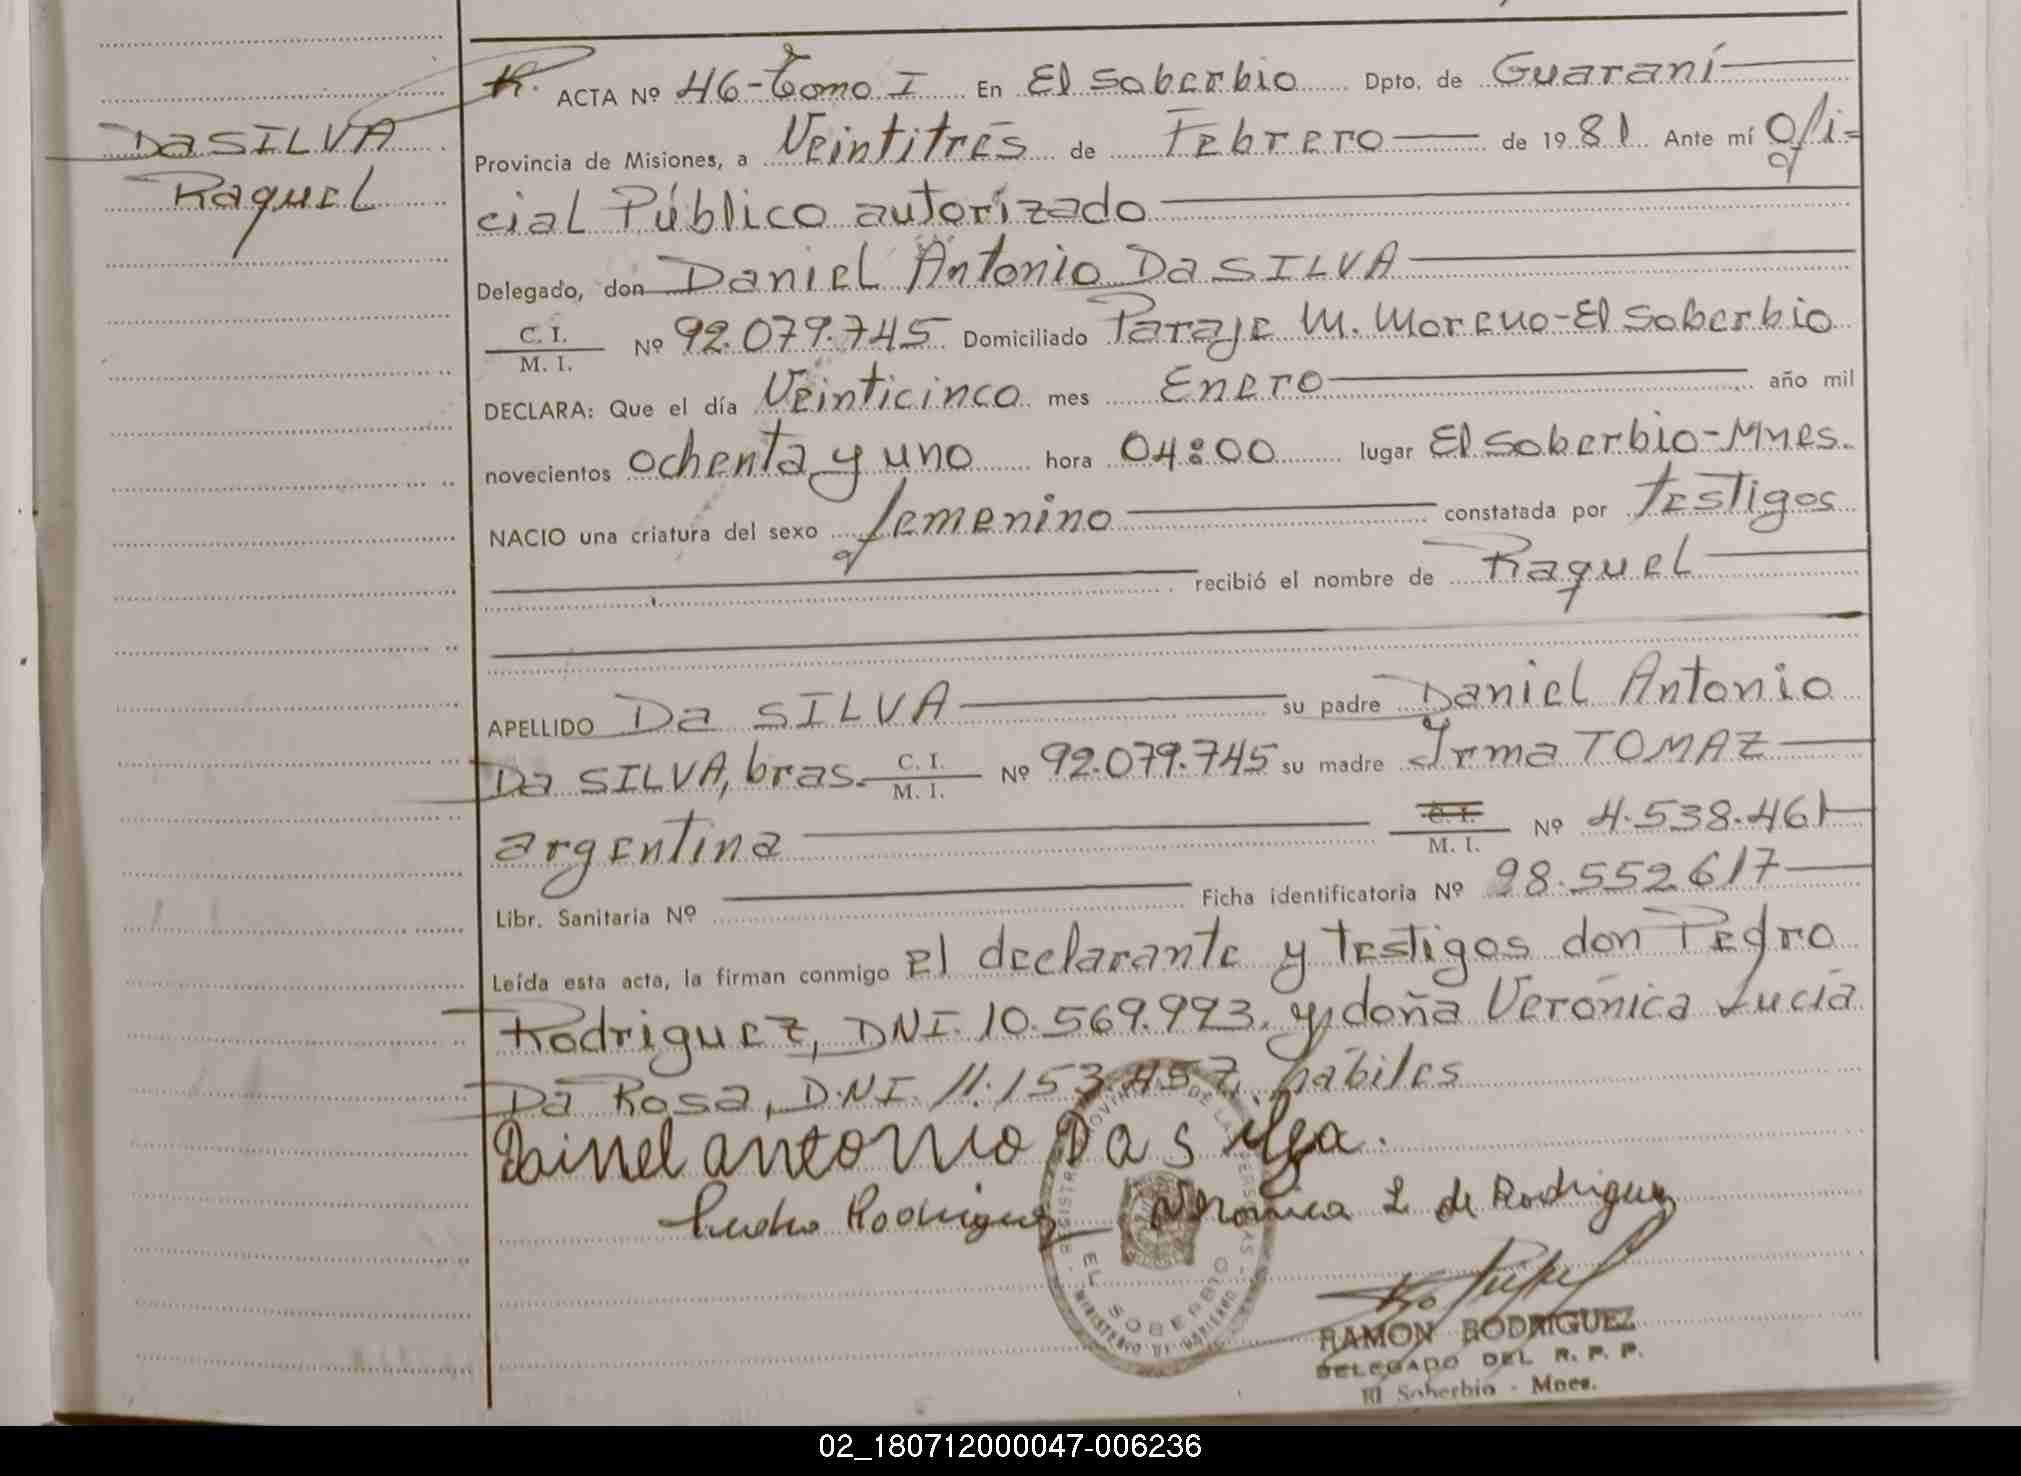 DaSILVA
Raquel
R. ACTA Nº 46-Tomo I En El Soberbio Dpto. de Guaraní
Provincia de Misiones, a Veintitrés de Febrero de 1981 Ante mí Ofi=
cial Público autorizado
Delegado, don Daniel Antonio Da SILVA
C. I.
M. I. Nº 92.079.745 Domiciliado Paraje M. Moreno-El Soberbio
DECLARA: Que el día Veinticinco mes Enero año mil
novecientos ochenta y uno hora 04:00 lugar El Soberbio-Mnes.
NACIO una criatura del sexo femenino constatada por testigos
recibió el nombre de Raquel
APELLIDO Da SILVA su padre Daniel Antonio
Da SILVA, bras. C. I. M. I. Nº 92.079.745 su madre Irma TOMAZ
argentina C. I. M. I. Nº 4.538.461
Libr. Sanitaria Nº Ficha identificatoria Nº 98.552.617
Leída esta acta, la firman conmigo el declarante y testigos don Pedro
Rodriguez, DNI. 10.569.993. y doña Verónica Lucía
Da Rosa, D.NI. 11.153.457, hábiles
Dainel antonio Da silga.
Pedro Rodriguez Veronica L de Rodriguez
EL SOBERBIO
RAMON RODRIGUEZ
DELEGADO DEL R. P. P.
El Soberbio - Mnes.
02_180712000047-006236